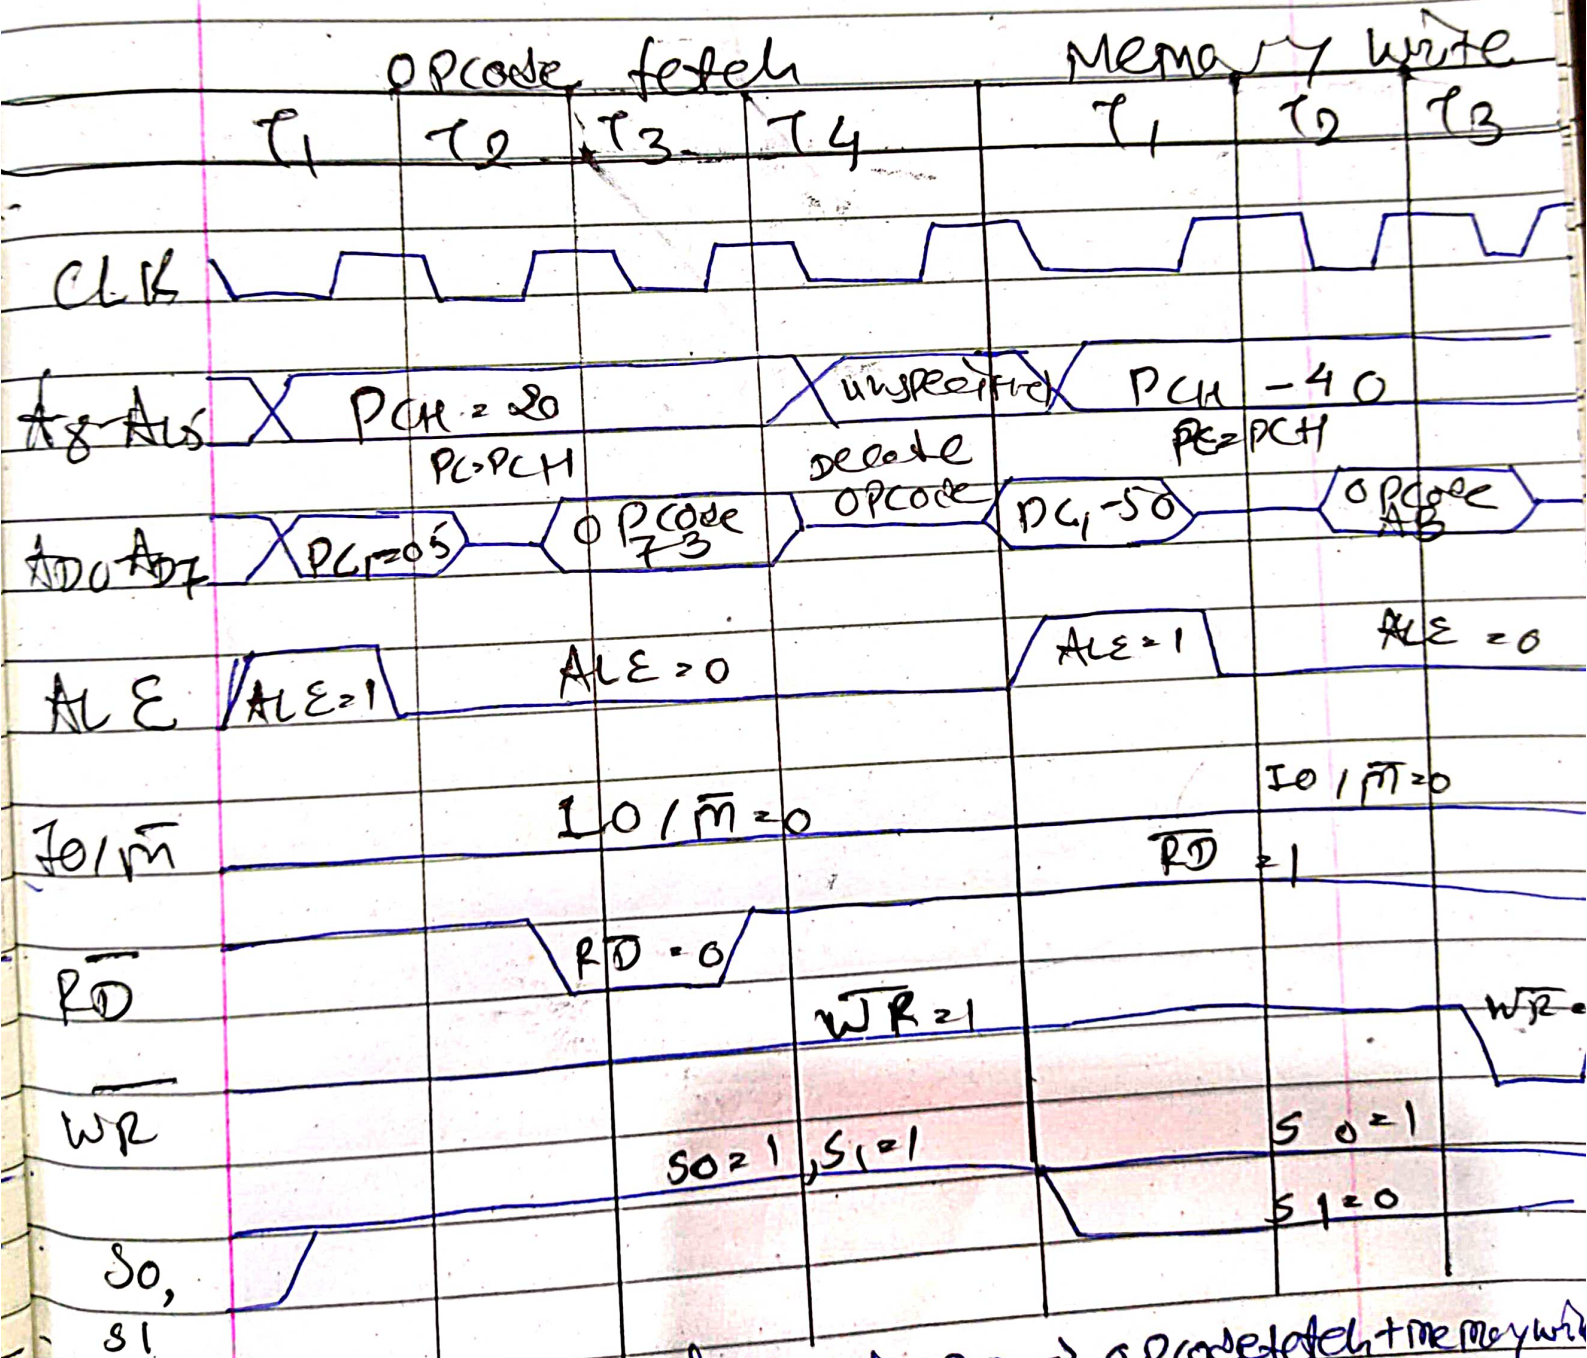 OPcode fetch Memory write
T1 T2 T3 T4 T1 T2 T3
CLK
A8-A15 PCH = 20 unspecified PCH - 40
PC=PCH Decode OPCODE PC=PCH
AD0-AD7 PCL=05 OPcode 73 PCL-50 OPcode AB
ALE ALE=1 ALE=0 ALE=1 ALE=0
IO/M̅ IO/M̅=0 IO/M̅=0
R̅D̅ RD=0 R̅D̅=1
W̅R̅ W̅R̅=1 W̅R̅=
S0, S1 S0=1, S1=1 S0=1
S1=0
opcodefetch+memorywri